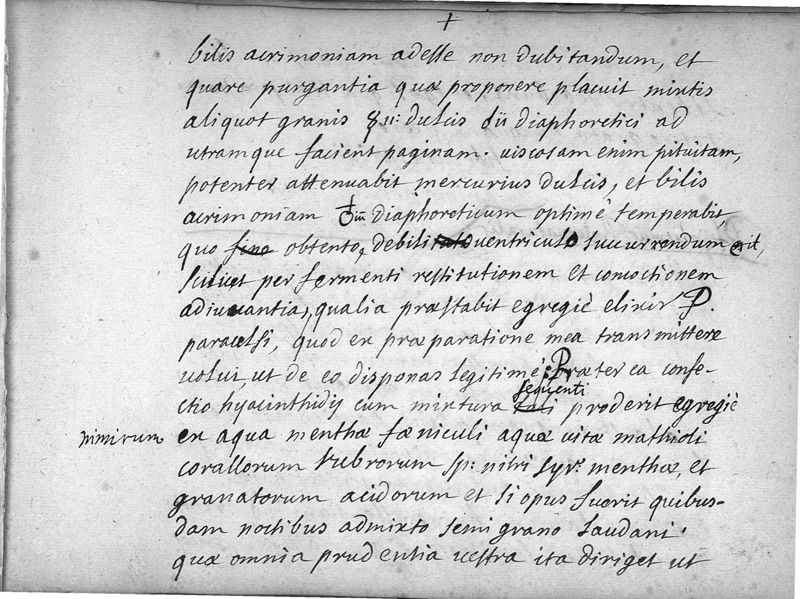 +
bilis acrimoniam adesse non dubitandum, et
quare purgantia quæ proponere placuit mixtis
aliquot granis ☿ii: dulcis ♁ii diaphoretici ad
utramque facient paginam. viscosam enim pituitam,
potenter attenuabit mercurius dulcis, et bilis
acrimoniam ♁iii diaphoreticum optimè temperabit,
quo fine obtento, debili ventriculo succurrendum erit,
scilicet per fermenti restitutionem et concoctionem
adiuvantia, qualia præstabit egregiè elixir P.
paracelsi, quod ex præparatione mea transmittere
volui, ut de eo disponas legitimé: Præter ea confe-
sequenti
ctio hyacinthidis cum mixtura tali proderit egregiè
nimirum ex aqua menthæ fæniculi aquæ vitæ mathioli
corallorum rubrorum sp: nitri syr: menthæ, et
granatorum acidorum et si opus fuerit quibus-
dam noctibus admixto semi grano laudani.
quæ omnia prudentia vestra ita diriget ut